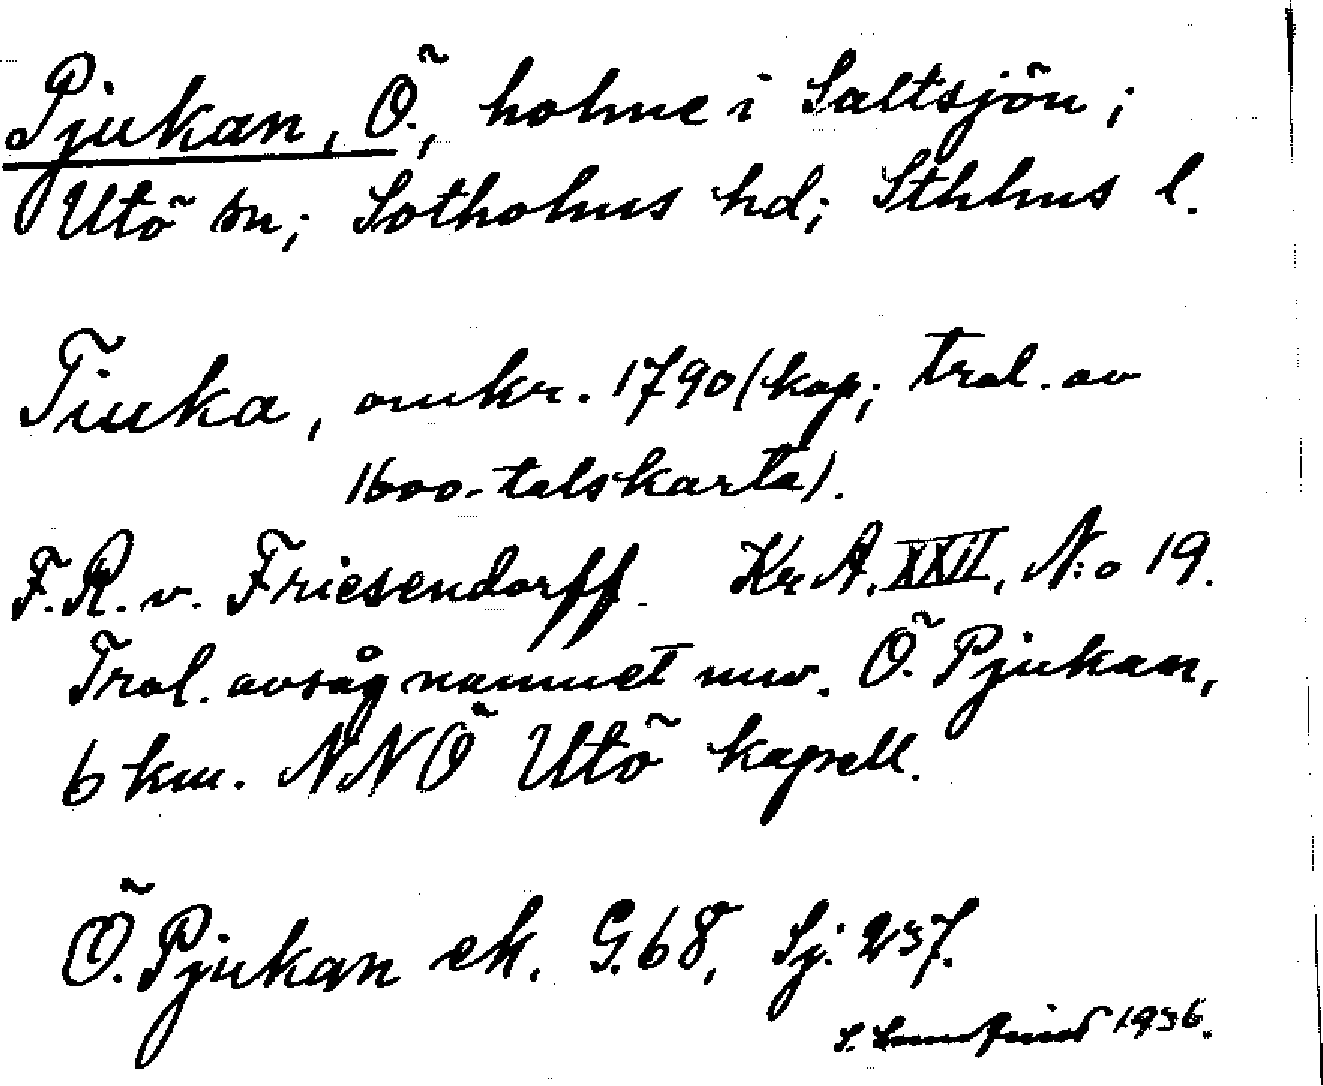 Pjukan, Ö., holme i Saltsjön;
Utö sn; Sotholms hd; Sthlms l.
Tiuka, omkr. 1790 (kop; trol. av
1600-talskarta).
F.R. v. Friesendorff. Kr A. XXII, N:o 19.
Trol. avsåg namnet nuv. Ö. Pjukan,
6 km. NNÖ Utö kapell.
Ö. Pjukan ek. G.68, Sj. 257.
S. 1936.